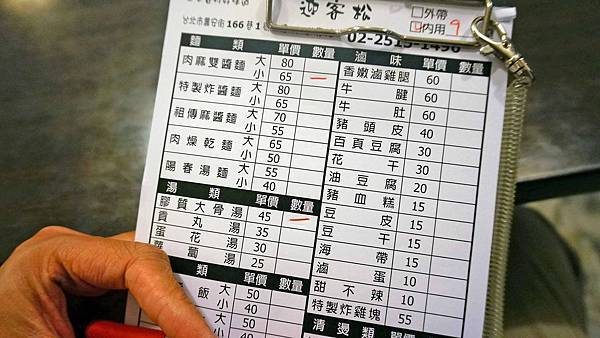 迎客松
□外帶
□內用 9
台北市萬安街166巷1
02-2515-1496
麵類 大小 單價 數量
肉麻雙醬麵 大 80
小 65 一
特製炸醬麵 大 80
小 65
祖傳麻醬麵 大 70
小 55
肉燥乾麵 大 65
小 50
陽春湯麵 大 55
小 40
湯類 單價 數量
膠質大骨湯 45 一
貢丸湯 35
蛋花湯 30
蘿蔔湯 25
類 單價 數量
飯 大 50
小 40
大 50
小 40
滷味 單價 數量
香嫩滷雞腿 60
牛腱 60
牛肚 60
豬頭皮 40
百頁豆腐 30
花干 30
油豆腐 20
豬血糕 15
豆皮 15
豆干 15
海帶 15
滷蛋 10
甜不辣 10
特製炸雞塊 55
清燙類 單價 數量